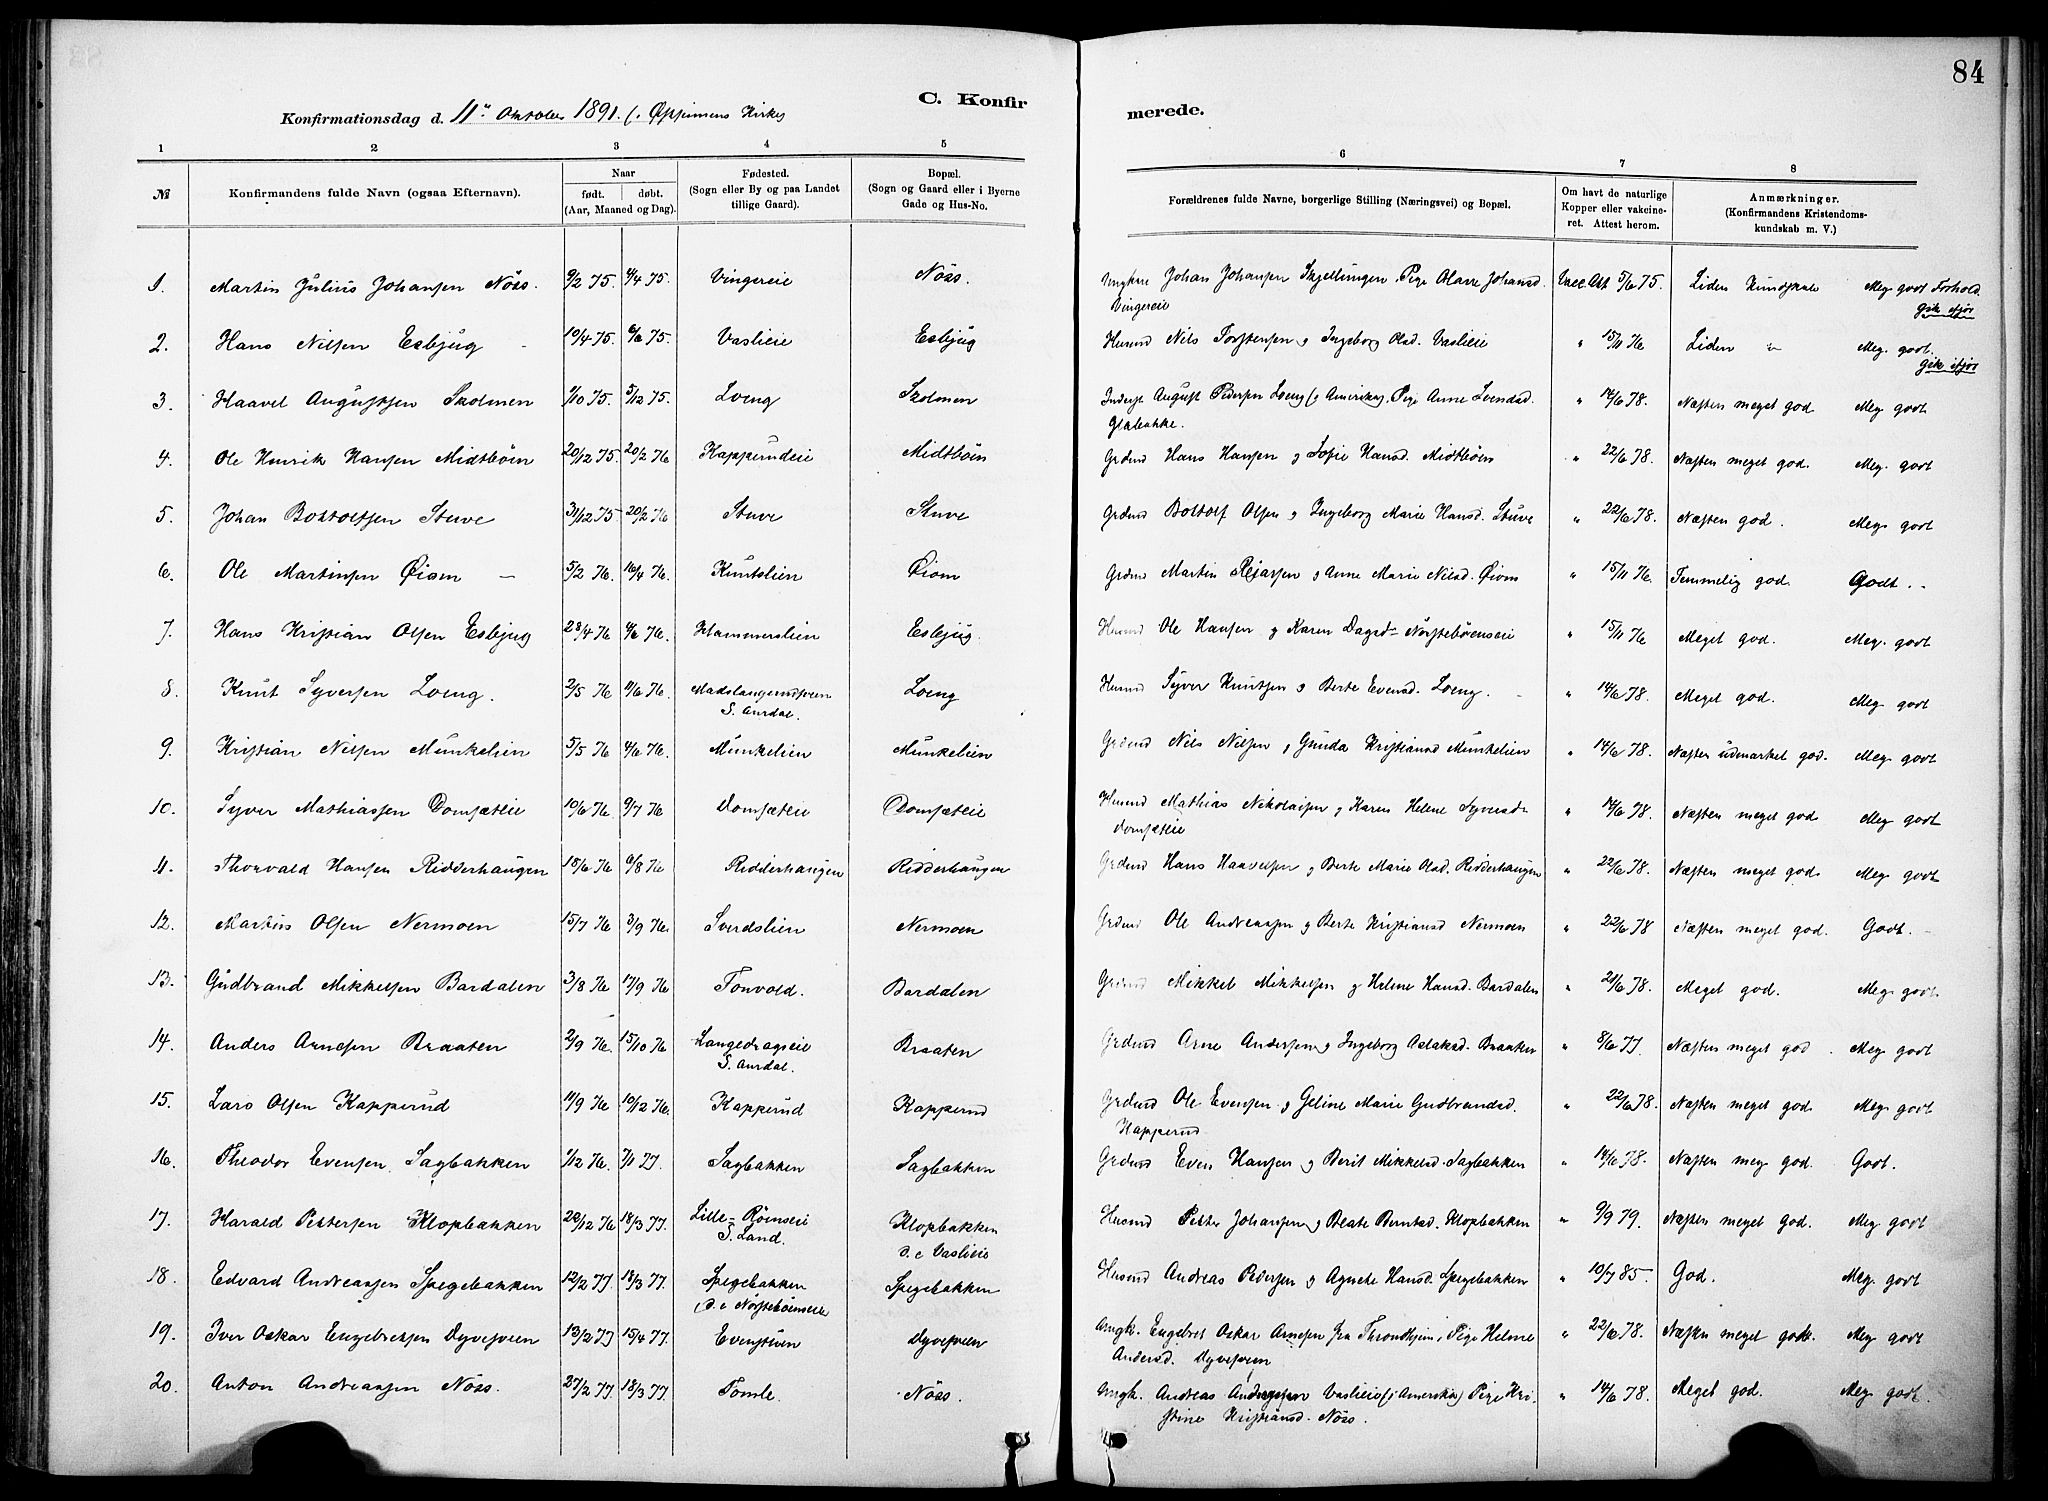 84
C. Konfirmerede.
Konfirmationsdag d. 11te Oktober 1891. (i Kirke)
1 2 3 4 5 6 7 8
№ Konfirmandens fulde Navn (ogsaa Efternavn). Naar født. døbt. (Aar, Maaned og Dag). Fødested. (Sogn eller By og paa Landet tillige Gaard). Bopæl. (Sogn og Gaard eller i Byerne Gade og Hus-No. Forældrenes fulde Navne, borgerlige Stilling (Næringsvei) og Bopæl. Om havt de naturlige Kopper eller vakcineret. Attest herom. Anmærkninger. (Konfirmandens Kristendomskundskab m. V.)
1. Martin Julius Johansen Nöss. 9/2 75. 4/4 75. Vingereie Nöss. Ungkar Johan Johansen Skjellingen, Pige Olave Johansd. Vacc. Att 5/6 75. Liden Kundskab Meg. godt Forhold.
Vingereie Gik ifjor
2. Hans Nilsen Esbjug 10/4 75. 6/6 75. Vaslieie Esbjug Husmd Nils Torstensen og Ingeborg Olsd. Vaslieie " 15/11 76 Liden " Meg. godt.
Gik ifjor
3. Haavel Augustsen Skolmen 1/10 75. 5/12 75. Loeng Skolmen Inderst August Pedersen Loeng (i Amerika), Pige Anne Svendsd. " 14/6 78. Næsten meget god Meg godt
4. Ole Henrik Hansen Midtböen 20/12 75. 20/2 76 Kapperudeie Midtböen Grdmd Hans Hansen og Sofie Hansd. Midtböen " 22/6 78. Næsten meget god. Meg. godt
5. Johan Bottolfsen Stuve 31/12 75 20/2 76 Stuve Stuve Grdmd Bottolf Olsen og Ingeborg Marie Hansd. Stuve " 22/6 78. Næsten god. Meg godt
6. Ole Martinsen Øiom 5/2 76. 16/4 76. Knutslien Øiom Grdmd Martin og Anne Marie Nilsd. Øiom " 15/11 76. Temmelig god. Godt.
7. Hans Kristian Olsen Esbjug 28/4 76 4/6 76. Hammerslien Esbjug. Husmd Ole Hansen og Karen Dagsd. Nörstebönseie " 15/11 76 Meget god. Meg. godt
8. Knut Syversen Loeng. 2/5 76 4/6 76. Loeng Husmd Syver Knutsen og Berte Evensd. Loeng. " 14/6 78. Meget god. Meg godt
S. Aurdal.
9. Kristian Nilsen Munkelien 5/5 76 4/6 76. Munkelien Munkelien Grdmd Nils Nilsen og Gunda Kristiansd Munkelien " 14/6 78. Næsten udmærket god. Meg godt
10. Syver Mathiassen Domsæteie 10/6 76 9/7 76 Domsæteie Domsæteie Husmd Mathias Nikolaisen og Karen Helene Syversd. " 14/6 78. Næsten meget god Meg godt
Domsæteie
11. Thorvald Hansen Ridderhaugen 18/6 76 6/8 76 Ridderhaugen Ridderhaugen Grdmd Hans Haavelsen og Berte Marie Olsd. Ridderhaugen " 22/6 78. Næsten meget god. Meg godt
12. Martin Olsen Nermoen 15/7 76 3/9 76. Sverdslien Nermoen Grdmd Ole Andreassen og Berte Kristiansd Nermoen " 22/6 78 Næsten meget god. Godt.
13. Gudbrand Mikkelsen Bardalen 3/8 76 17/9 76 Tonvold. Bardalen Grdmd Mikkel Mikkelsen og Helene Hansd. Bardalen " 21/6 78. Meget god. Meg godt
14. Anders Arnesen Braaten 2/9 76. 15/10 76 Langedragseie Braaten Grdmd Arne Andersen og Ingeborg Aslaksd. Braaten " 8/6 77. Næsten meget god Meg godt
S. Aurdal.
15. Lars Olsen Kapperud 11/9 76 10/12 76. Kapperud Kapperud Grdmd Ole Evensen og Geline Marie Gudbrandsd. " 22/6 78. Næsten meget god Meg godt
Kapperud
16. Theodor Evensen Sagbakken 1/12 76. 7/1 77. Sagbakken Sagbakken Grdmd Even Hansen og Berit Mikkelsd. Sagbakken " 14/6 78. Næsten meg god. Godt.
17. Harald Pettersen Klopbakken 20/12 76 18/3 77. Lille-Römseie Klopbakken Husmd Petter Johansen og Beate Berntsd. Klopbakken " 9/9 79. Næsten meget god. Meg godt
S. Land. d. e Vaslieie
18. Edvard Andreassen Spegebakken 12/2 77 18/3 77. Spegebakken Spegebakken Husmd Andreas Pedersen og Agnete Hansd. Spegebakken " 10/7 85. God. Meg. godt
(d. e Nörsteböenseie
19. Iver Oskar Engebretsen Dyvesveen 13/2 77 15/4 77. Evenstuen Dyvesveen Ungk. Engebret Oskar Arnesen fra Throndhjem, Pige Helene " 22/6 78. Næsten meget godt. Meg godt
Andersd. Dyvesveen
20. Anton Andreassen Nöss. 27/2 77. 18/3 77. Tomle. Nöss. Ungk. Andreas Andreassen Vaslieie (i Amerika) Pige Kri- " 14/6 78. Meget god. Meg godt.
stine Kristiansd. Nöss.